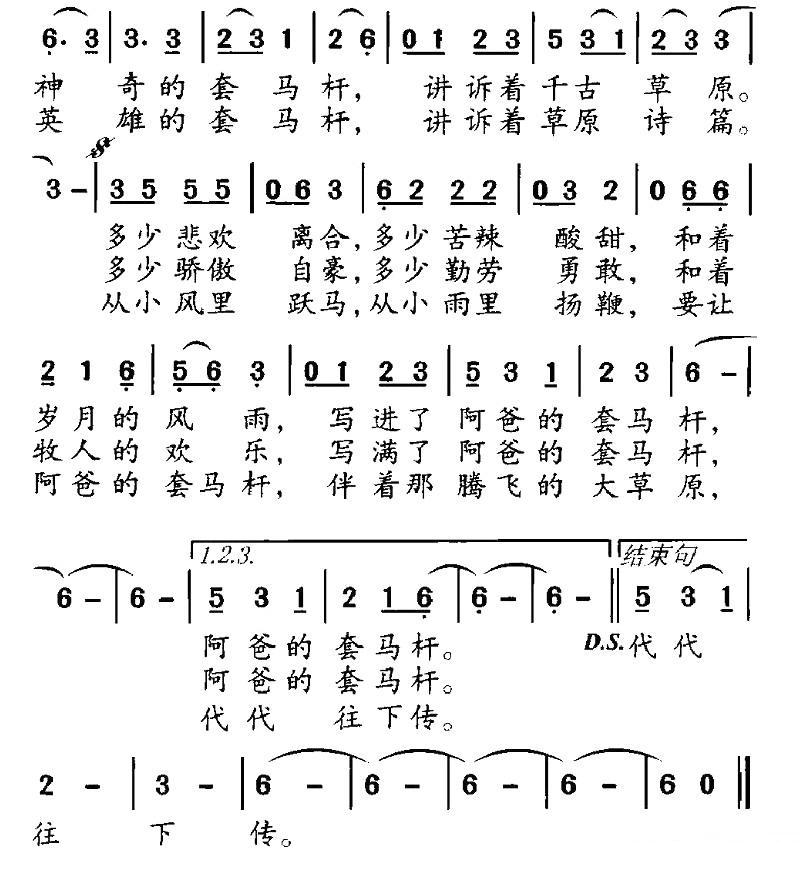 6· 3 | 3· 3 | 2 3 1 | 2 6 | 0 1 2 3 | 5 3 1 | 2 3 3
神 奇的 套 马 杆， 讲 诉着 千古 草 原。
英 雄的 套 马 杆， 讲 诉着 草原 诗 篇。
3 – | 3 5 5 5 | 0 6 3 | 6 2 2 2 | 0 3 2 | 0 6 6 |
多少 悲欢 离合，多少 苦辣 酸甜， 和着
多少 骄傲 自豪，多少 勤劳 勇敢， 和着
从小 风里 跃马，从小 雨里 扬鞭， 要让
2 1 6 | 5 6 3 | 0 1 2 3 | 5 3 1 | 2 3 | 6 – |
岁月的 风 雨， 写 进了 阿爸的 套马 杆，
牧人的 欢 乐， 写 满了 阿爸的 套马 杆，
阿爸的 套马杆， 伴 着那 腾飞的 大草 原，
1.2.3. 结束句
6 – | 6 – | 5 3 1 | 2 1 6 | 6 – | 6 – || 5 3 1 |
阿爸的 套马杆。 D.S. 代代
阿爸的 套马杆。
代代 往下传。
2 – | 3 – | 6 – | 6 – | 6 – | 6 – | 6 0 ||
往 下 传。